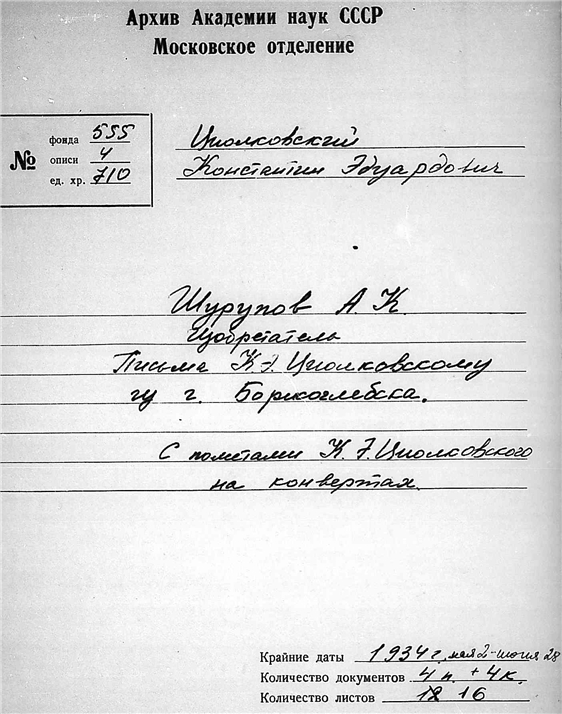 Архив Академии наук СССР
Московское отделение
№
фонда 555
описи 4
ед. хр. 710
Циолковский
Константин Эдуардович
Шурупов А. К.
Изобретатель
Письма К.Э. Циолковскому
из г. Борисоглебска.
С пометами К.Э. Циолковского
на конвертах.
Крайние даты 1934 г., мая 2 - июня 28
Количество документов 4 п. + 4 к.
Количество листов 16